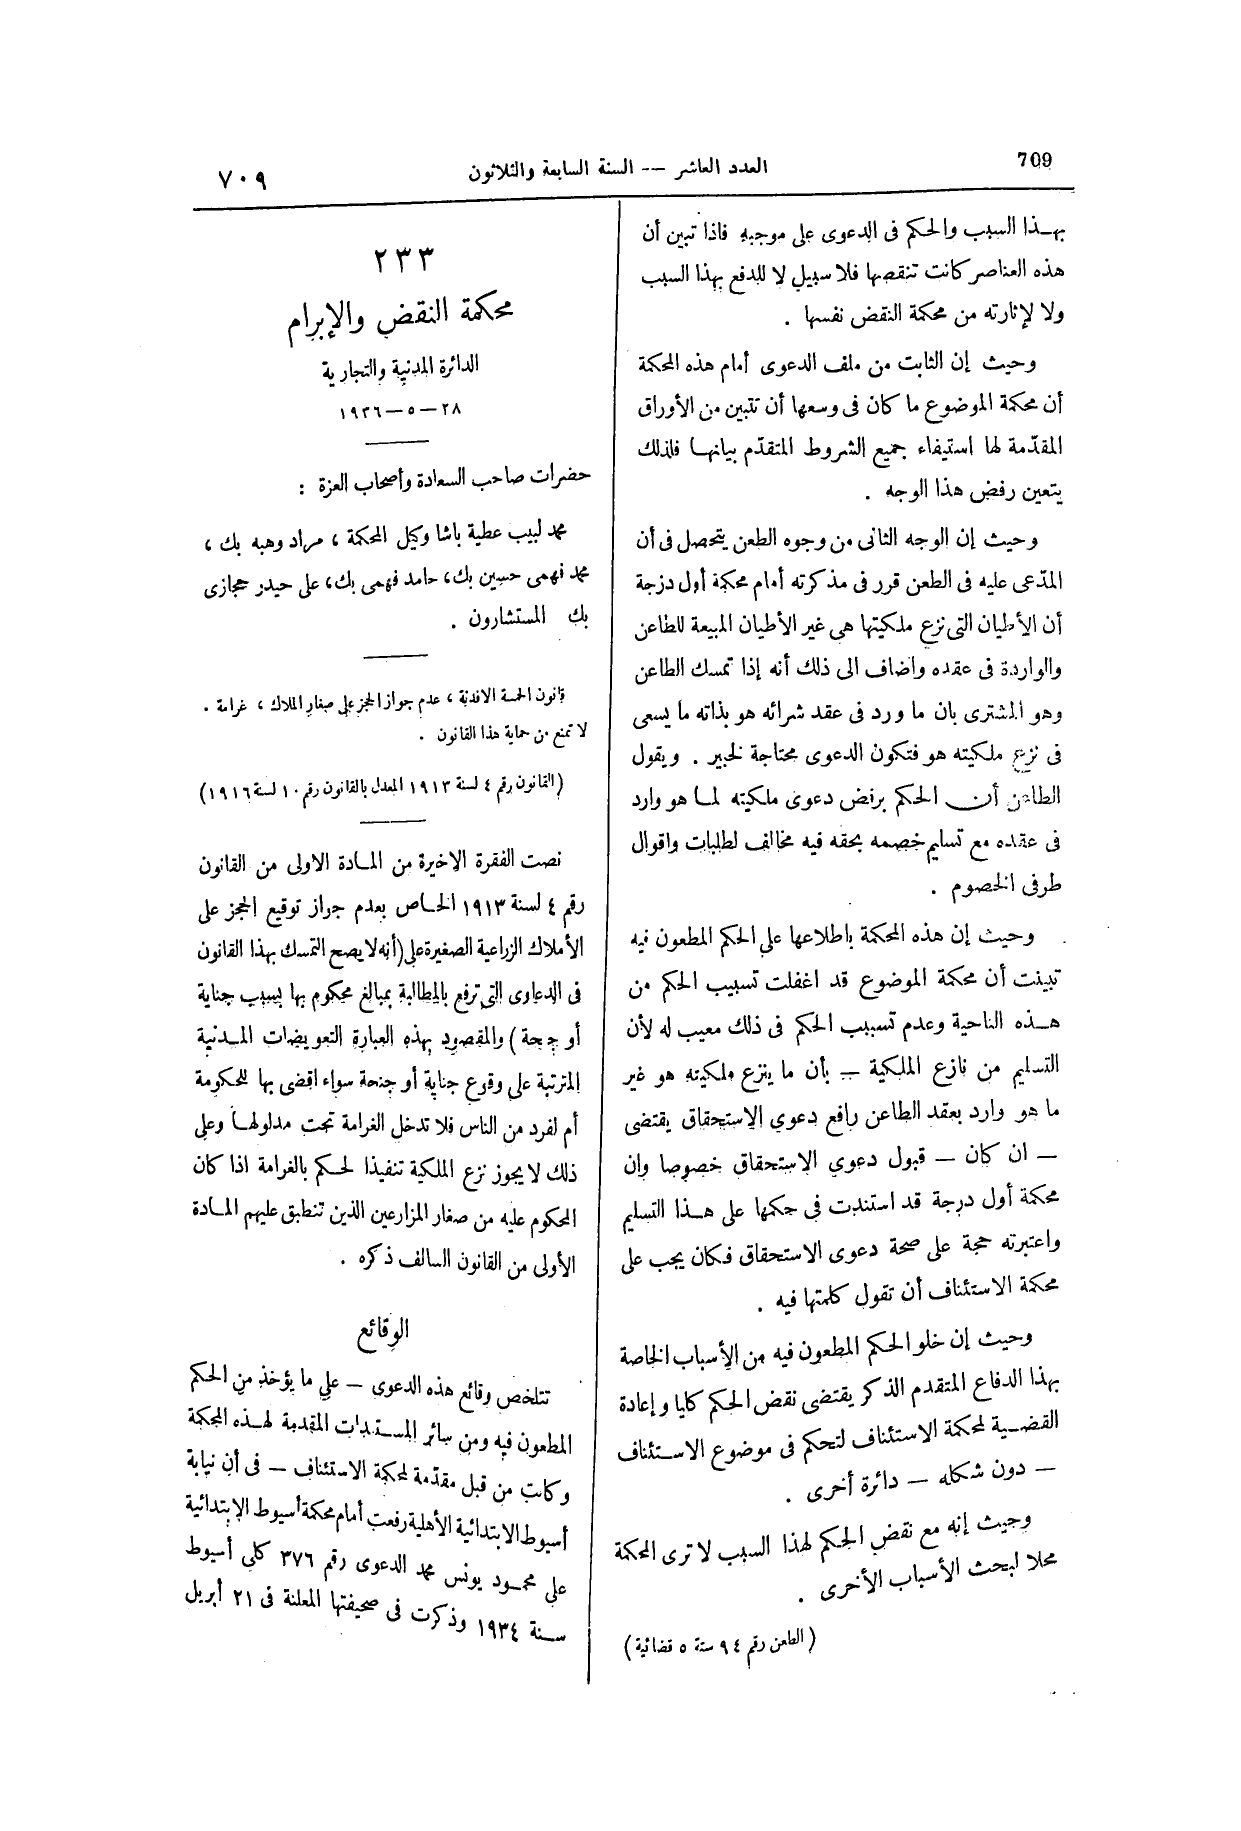 709
العدد العاشر — السنة السابعة والثلاثون
٧٠٩
بهذا السبب والحكم فى الدعوى على موجبه فاذا تبين أن
هذه العناصر كانت تنقصها فلا سبيل لا للدفع بهذا السبب
ولا لإثارته من محكمة النقض نفسها .
وحيث إن الثابت من ملف الدعوى أمام هذه المحكمة
أن محكمة الموضوع ما كان فى وسعها أن تتبين من الأوراق
المقدّمة لها استيفاء جميع الشروط المتقدّم بيانها فلذلك
يتعين رفض هذا الوجه .
وحيث إن الوجه الثانى من وجوه الطعن يتحصل فى أن
المدّعى عليه فى الطعن قرر فى مذكرته أمام محكمة أول درجة
أن الأطيان التى نزع ملكيتها هى غير الأطيان المبيعة للطاعن
والواردة فى عقده واضاف الى ذلك أنه إذا تمسك الطاعن
وهو المشترى بان ما ورد فى عقد شرائه هو بذاته ما يسعى
فى نزع ملكيته هو فتكون الدعوى محتاجة لخبير . ويقول
الطاعن أن الحكم برفض دعوى ملكيته لما هو وارد
فى عقده مع تسليم خصمه بحقه فيه مخالف لطلبات واقوال
طرفى الخصوم .
وحيث إن هذه المحكمة باطلاعها على الحكم المطعون فيه
تبينت أن محكمة الموضوع قد اغفلت تسبيب الحكم من
هذه الناحية وعدم تسبيب الحكم فى ذلك معيب له لأن
التسليم من نازع الملكية — بأن ما ينزع ملكيته هو غير
ما هو وارد بعقد الطاعن رافع دعوى الاستحقاق يقتضى
— ان كان — قبول دعوى الاستحقاق خصوصا وان
محكمة أول درجة قد استندت فى حكمها على هذا التسليم
واعتبرته حجة على صحة دعوى الاستحقاق فكان يجب على
محكمة الاستئناف أن تقول كلمتها فيه .
وحيث إن خلو الحكم المطعون فيه من الأسباب الخاصة
بهذا الدفاع المتقدم الذكر يقتضى نقض الحكم كليا وإعادة
القضية لمحكمة الاستئناف لتحكم فى موضوع الاستئناف
— دون شكله — دائرة أخرى .
وحيث إنه مع نقض الحكم لهذا السبب لا ترى المحكمة
محلا لبحث الأسباب الأخرى .
(الطعن رقم ٩٤ سنة ٥ قضائية)
٢٣٣
محكمة النقض والإبرام
الدائرة المدنية والتجارية
٢٨ — ٥ — ١٩٣٦
حضرات صاحب السعادة وأصحاب العزة :
محمد لبيب عطية باشا وكيل المحكمة ، مراد وهبه بك ،
محمد فهمى حسين بك، حامد فهمى بك، على حيدر حجازى
بك المستشارون .
قانون الخمسة الافدنة ، عدم جواز الحجز على صغار الملاك ، غرامة .
لا تمنع من حماية هذا القانون .
(القانون رقم ٤ لسنة ١٩١٣ المعدل بالقانون رقم ١٠ لسنة ١٩١٦)
نصت الفقرة الاخيرة من المادة الاولى من القانون
رقم ٤ لسنة ١٩١٣ الخاص بعدم جواز توقيع الحجز على
الأملاك الزراعية الصغيرة على (أنه لا يصح التمسك بهذا القانون
فى الدعاوى التى ترفع بالمطالبة بمبالغ محكوم بها بسبب جناية
أو جنحة) والمقصود بهذه العبارة التعويضات المدنية
المترتبة على وقوع جناية أو جنحة سواء اقضى بها للحكومة
أم لفرد من الناس فلا تدخل الغرامة تحت مدلولها وعلى
ذلك لا يجوز نزع الملكية تنفيذا لحكم بالغرامة اذا كان
المحكوم عليه من صغار المزارعين الذين تنطبق عليهم المادة
الأولى من القانون السالف ذكره .
الوقائع
تتلخص وقائع هذه الدعوى — على ما يؤخذ من الحكم
المطعون فيه ومن سائر المستندات المقدمة لهذه المحكمة
وكانت من قبل مقدّمة لمحكمة الاستئناف — فى أن نيابة
أسيوط الابتدائية الأهلية رفعت أمام محكمة أسيوط الابتدائية
على محمود يونس محمد الدعوى رقم ٣٧٦ كلى أسيوط
سنة ١٩٣٤ وذكرت فى صحيفتها المعلنة فى ٢١ أبريل